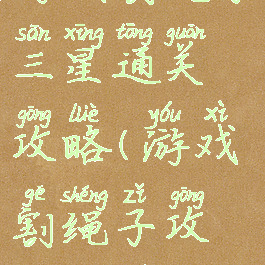 sān xīng tōng guān
三星通关
gōng lüè yóu xì
攻略(游戏
gē shéng zǐ gōng
割绳子攻